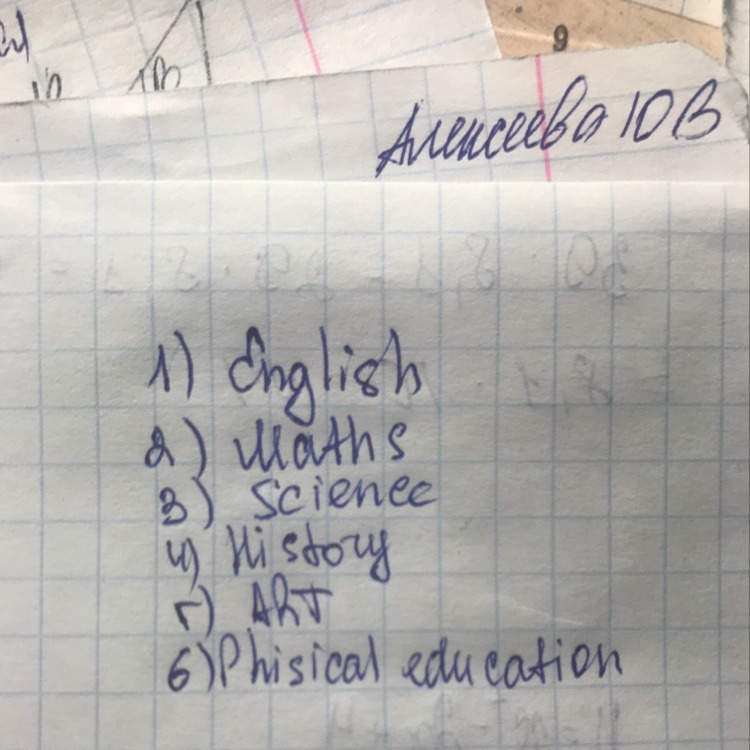 9
1B
Алексеева 10В
1) English
2) Maths
3) Science
4) History
5) ART
6) Phisical education